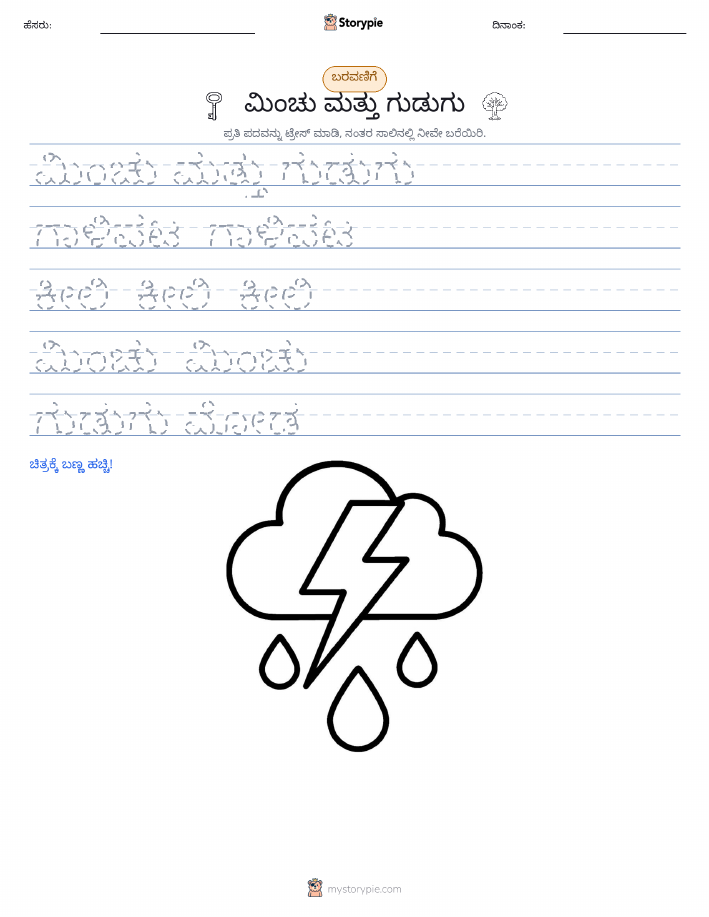 ಹೆಸರು: Storypie ದಿನಾಂಕ:
ಬರವಣಿಗೆ
ಮಿಂಚು ಮತ್ತು ಗುಡುಗು
ಪ್ರತಿ ಪದವನ್ನು ಟ್ರೇಸ್ ಮಾಡಿ, ನಂತರ ಸಾಲಿನಲ್ಲಿ ನೀವೇ ಬರೆಯಿರಿ.
ಮಿಂಚು ಮತ್ತು ಗುಡುಗು
ಗಾಳಿಪಟ ಗಾಳಿಪಟ
ಕೀಲಿ ಕೀಲಿ ಕೀಲಿ
ಮಿಂಚು ಮಿಂಚು
ಗುಡುಗು ಮೋಡ
ಚಿತ್ರಕ್ಕೆ ಬಣ್ಣ ಹಚ್ಚಿ!
mystorypie.com